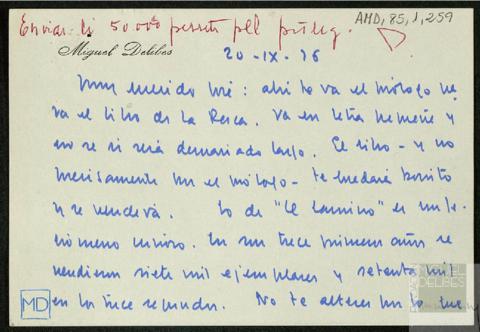 Enviar li 50.000 pessetes pel pròleg.
AMD, 85, 1, 259
Miguel Delibes
20-IX-76
Muy querido José: ahí te va el prólogo pa-
ra el libro de la Pesca. Va en letra pequeña y
no sé si será demasiado largo. El libro - y no
precisamente por el prólogo - te quedará bonito
y se venderá. Lo de "El camino" es un fe-
nómeno curioso. En sus trece primeros años se
vendieron siete mil ejemplares y setenta mil
en los trece segundos. No te alteres por lo que
MD
MIGUEL
DELIBES